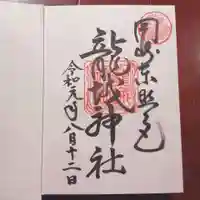 岡崎東照宮
龍城神社
令和元年八月十二日